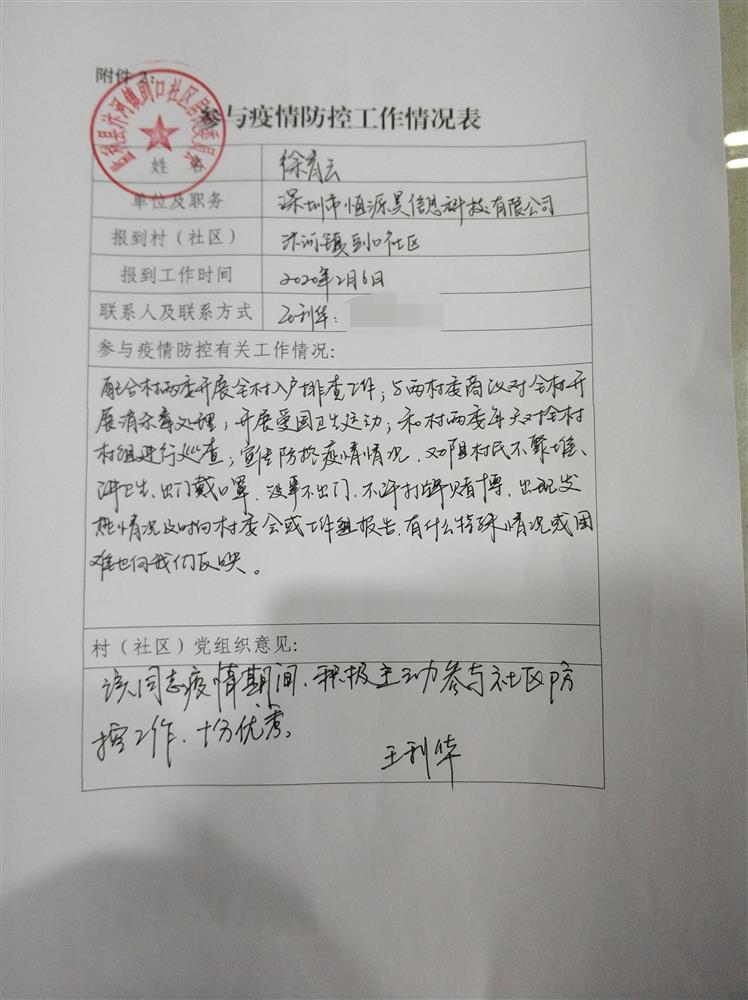 附件2:
参与疫情防控工作情况表
姓 名 徐有云
单位及职务 深圳市恒源昊信息科技有限公司
报到村（社区） 汴河镇剅口社区
报到工作时间 2020年2月6日
联系人及联系方式 王利华:
参与疫情防控有关工作情况:
配合村两委开展全村入户排查工作；与两村委商议对全村开
展消杀毒处理；开展爱国卫生运动；和村两委每天对全村
村组进行巡查；宣传防控疫情情况、劝阻村民不聚堆、
讲卫生、出门戴口罩、没事不出门、不许打牌赌博、出现发
热情况及时向村委会或工作组报告、有什么特殊情况或困
难也向我们反映。
村（社区）党组织意见:
该同志疫情期间、积极主动参与社区防
控工作、十分优秀。
王利华